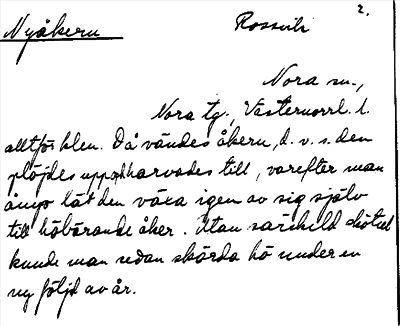 Nyåkern Rossvik 2.
Nora sn.,
Nora tg., Västernorrl. l.
alltför klen. Då vändes åkern, d. v. s. den
plöjdes upp och harvades till, varefter man
ånyo lät den växa igen av sig själv
till höbärande åker. Utan särskild skötsel
kunde man sedan skörda hö under en
ny följd av år.